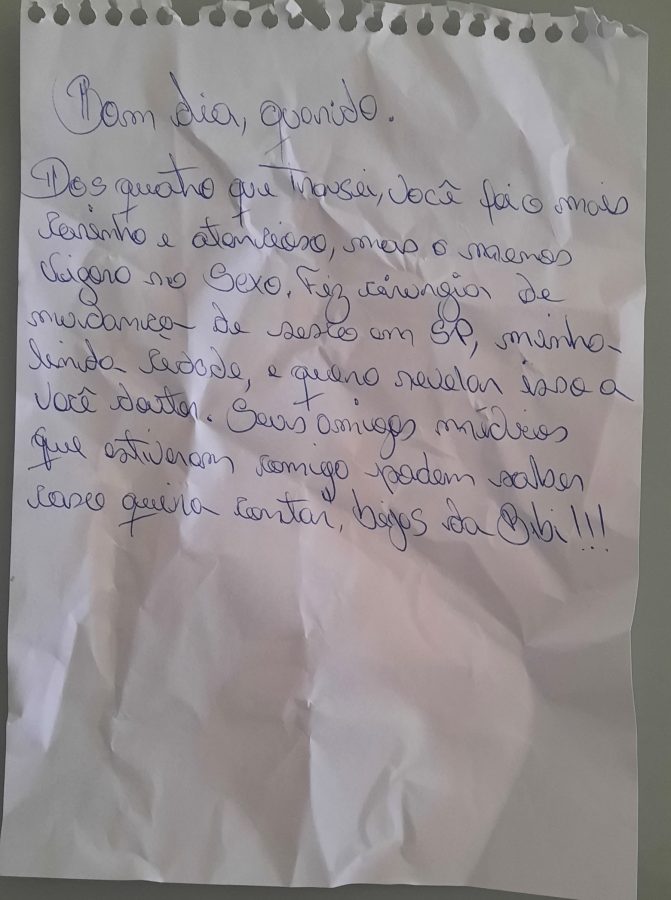 Bom dia, querido.
Dos quatro que transei, você foi o mais
carinho e atencioso, mas o menos
vigoro no sexo. Fiz cirurgia de
mudança de sexo em SP, minha
linda cidade, e quero revelar isso a
você doutor. Seus amigos médicos
que estiveram comigo podem saber
caso queira contar, beijos da Bibi!!!